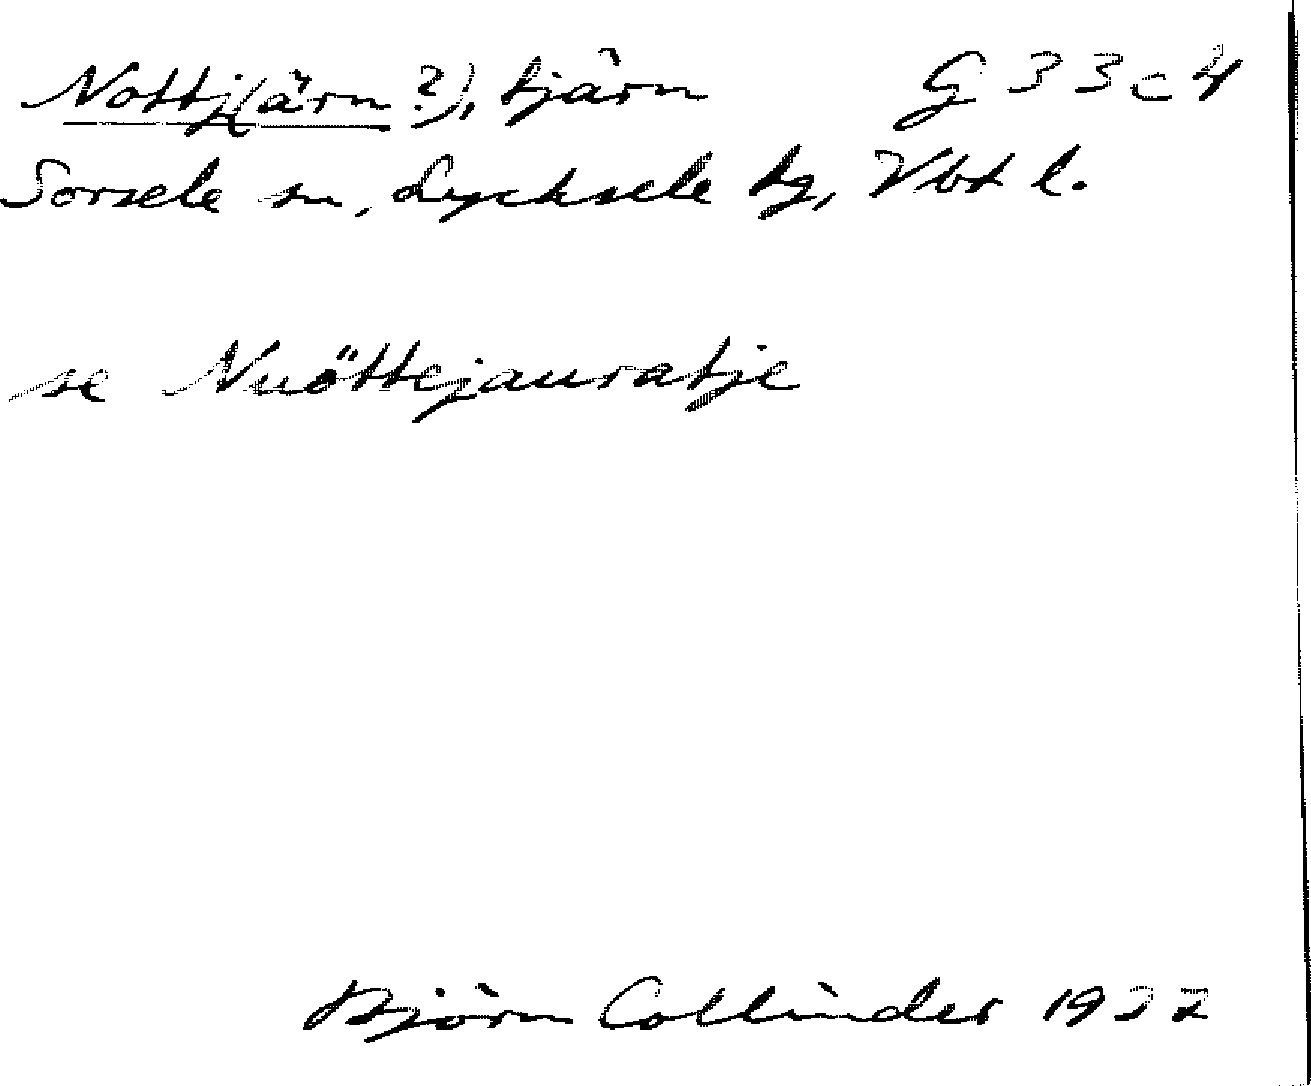 Nottj(ärn?), tjärn G 33 c 4
Sorsele sn, Lycksele tg, Vbt l.
se Nuöttejauratje
Björn Collinder 1937